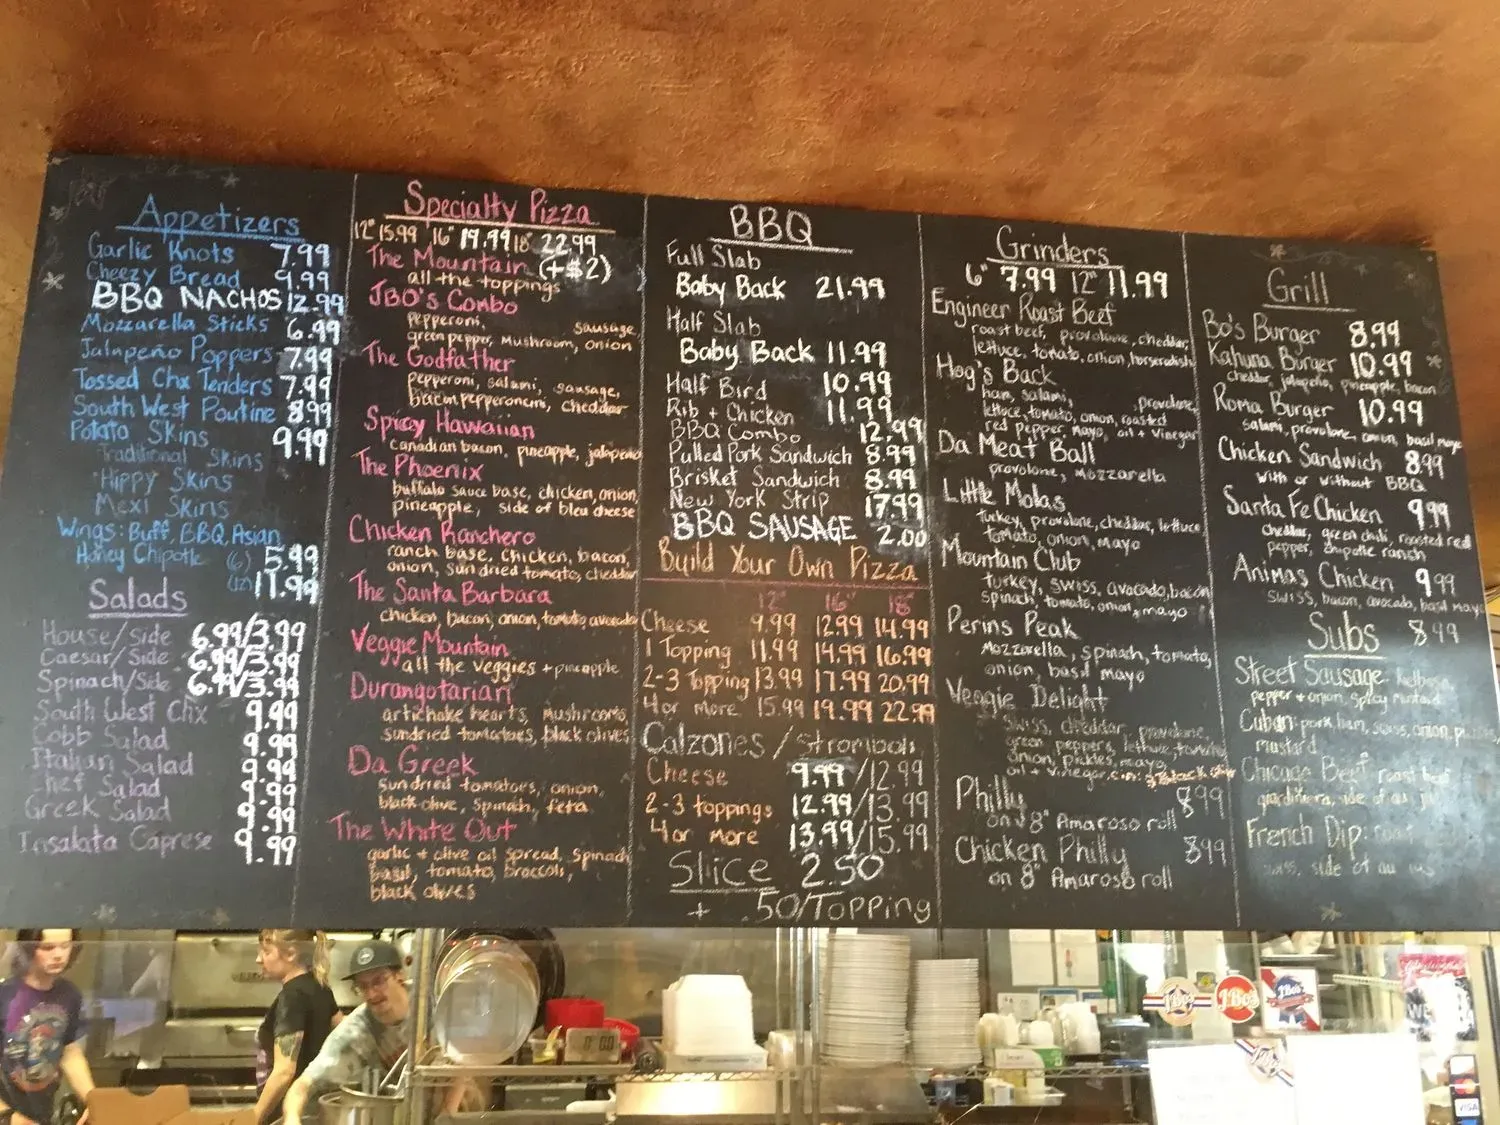 Appetizers
Garlic Knots 7.99
Cheezy Bread 9.99
BBQ NACHOS 12.99
Mozzarella Sticks 6.99
Jalapeño Poppers 7.99
Tossed Chx Tenders 7.99
South West Poutine 8.99
Potato Skins 9.99
Traditional Skins
Hippy Skins
Mexi Skins
Wings: Buff, BBQ, Asian
Honey Chipotle (6) 5.99
(12) 11.99
Salads
House/Side 6.99/3.99
Caesar/Side 6.99/3.99
Spinach/Side 6.99/3.99
South West Chx 9.99
Cobb Salad 9.99
Italian Salad 9.99
Chef Salad 9.99
Greek Salad 9.99
Insalata Caprese 9.99
Specialty Pizza
12" 15.99 16" 19.99 18" 22.99
The Mountain (+$2)
all the toppings
JBO's Combo
pepperoni, sausage,
green pepper, mushroom, onion
The Godfather
pepperoni, salami, sausage,
bacon, pepperoncini, cheddar
Spicy Hawaiian
canadian bacon, pineapple, jalapeno
The Phoenix
buffalo sauce base, chicken, onion,
pineapple, side of bleu cheese
Chicken Ranchero
ranch base, chicken, bacon,
onion, sundried tomato, cheddar
The Santa Barbara
chicken, bacon, onion, tomato, avocado
Veggie Mountain
all the veggies + pineapple
Durangotarian
artichoke hearts, mushrooms,
sundried tomatoes, black olives
Da Greek
sundried tomatoes, onion,
black olive, spinach, feta
The White Out
garlic + olive oil spread, spinach
basil, tomato, broccoli,
black olives
BBQ
Full Slab
Baby Back 21.99
Half Slab
Baby Back 11.99
Half Bird 10.99
Rib + Chicken 11.99
BBQ Combo 12.99
Pulled Pork Sandwich 8.99
Brisket Sandwich 8.99
New York Strip 17.99
BBQ SAUSAGE 2.00
Build Your Own Pizza
12" 16" 18"
Cheese 9.99 12.99 14.99
1 Topping 11.99 14.99 16.99
2-3 Topping 13.99 17.99 20.99
4 or more 15.99 19.99 22.99
Calzones / Stromboli
Cheese 9.99/12.99
2-3 toppings 12.99/13.99
4 or more 13.99/15.99
Slice 2.50
+ .50/Topping
Grinders
6" 7.99 12" 11.99
Engineer Roast Beef
roast beef, provolone, cheddar,
lettuce, tomato, onion, horseradish
Hog's Back
ham, salami, provolone,
lettuce, tomato, onion, roasted
red pepper mayo, oil + vinegar
Da Meat Ball
provolone, mozzarella
Little Molas
turkey, provolone, cheddar, lettuce
tomato, onion, mayo
Mountain Club
turkey, swiss, avocado, bacon
spinach, tomato, onion, mayo
Perins Peak
mozzarella, spinach, tomato,
onion, basil mayo
Veggie Delight
swiss, cheddar, provolone,
green peppers, lettuce, tomato,
onion, pickles, mayo,
oil + vinegar,
Philly 8.99
on 8" Amaroso roll
Chicken Philly 8.99
on 8" Amaroso roll
Grill
Bo's Burger 8.99
Kahuna Burger 10.99
cheddar, jalapeño, pineapple, bacon
Roma Burger 10.99
salami, provolone, onion, basil mayo
Chicken Sandwich 8.99
with or without BBQ
Santa Fe Chicken 9.99
cheddar, green chili, roasted red
pepper, chipotle ranch
Animas Chicken 9.99
swiss, bacon, avocado, basil mayo
Subs 8.99
Street Sausage:
pepper + onion, spicy mustard
Cuban: pork, ham, swiss, onion,
mustard
Chicago Beef roast beef
giardiniera, side of au
French Dip: roast
swiss, side of au jus
JBo's
JBo's
JBo's
VISA